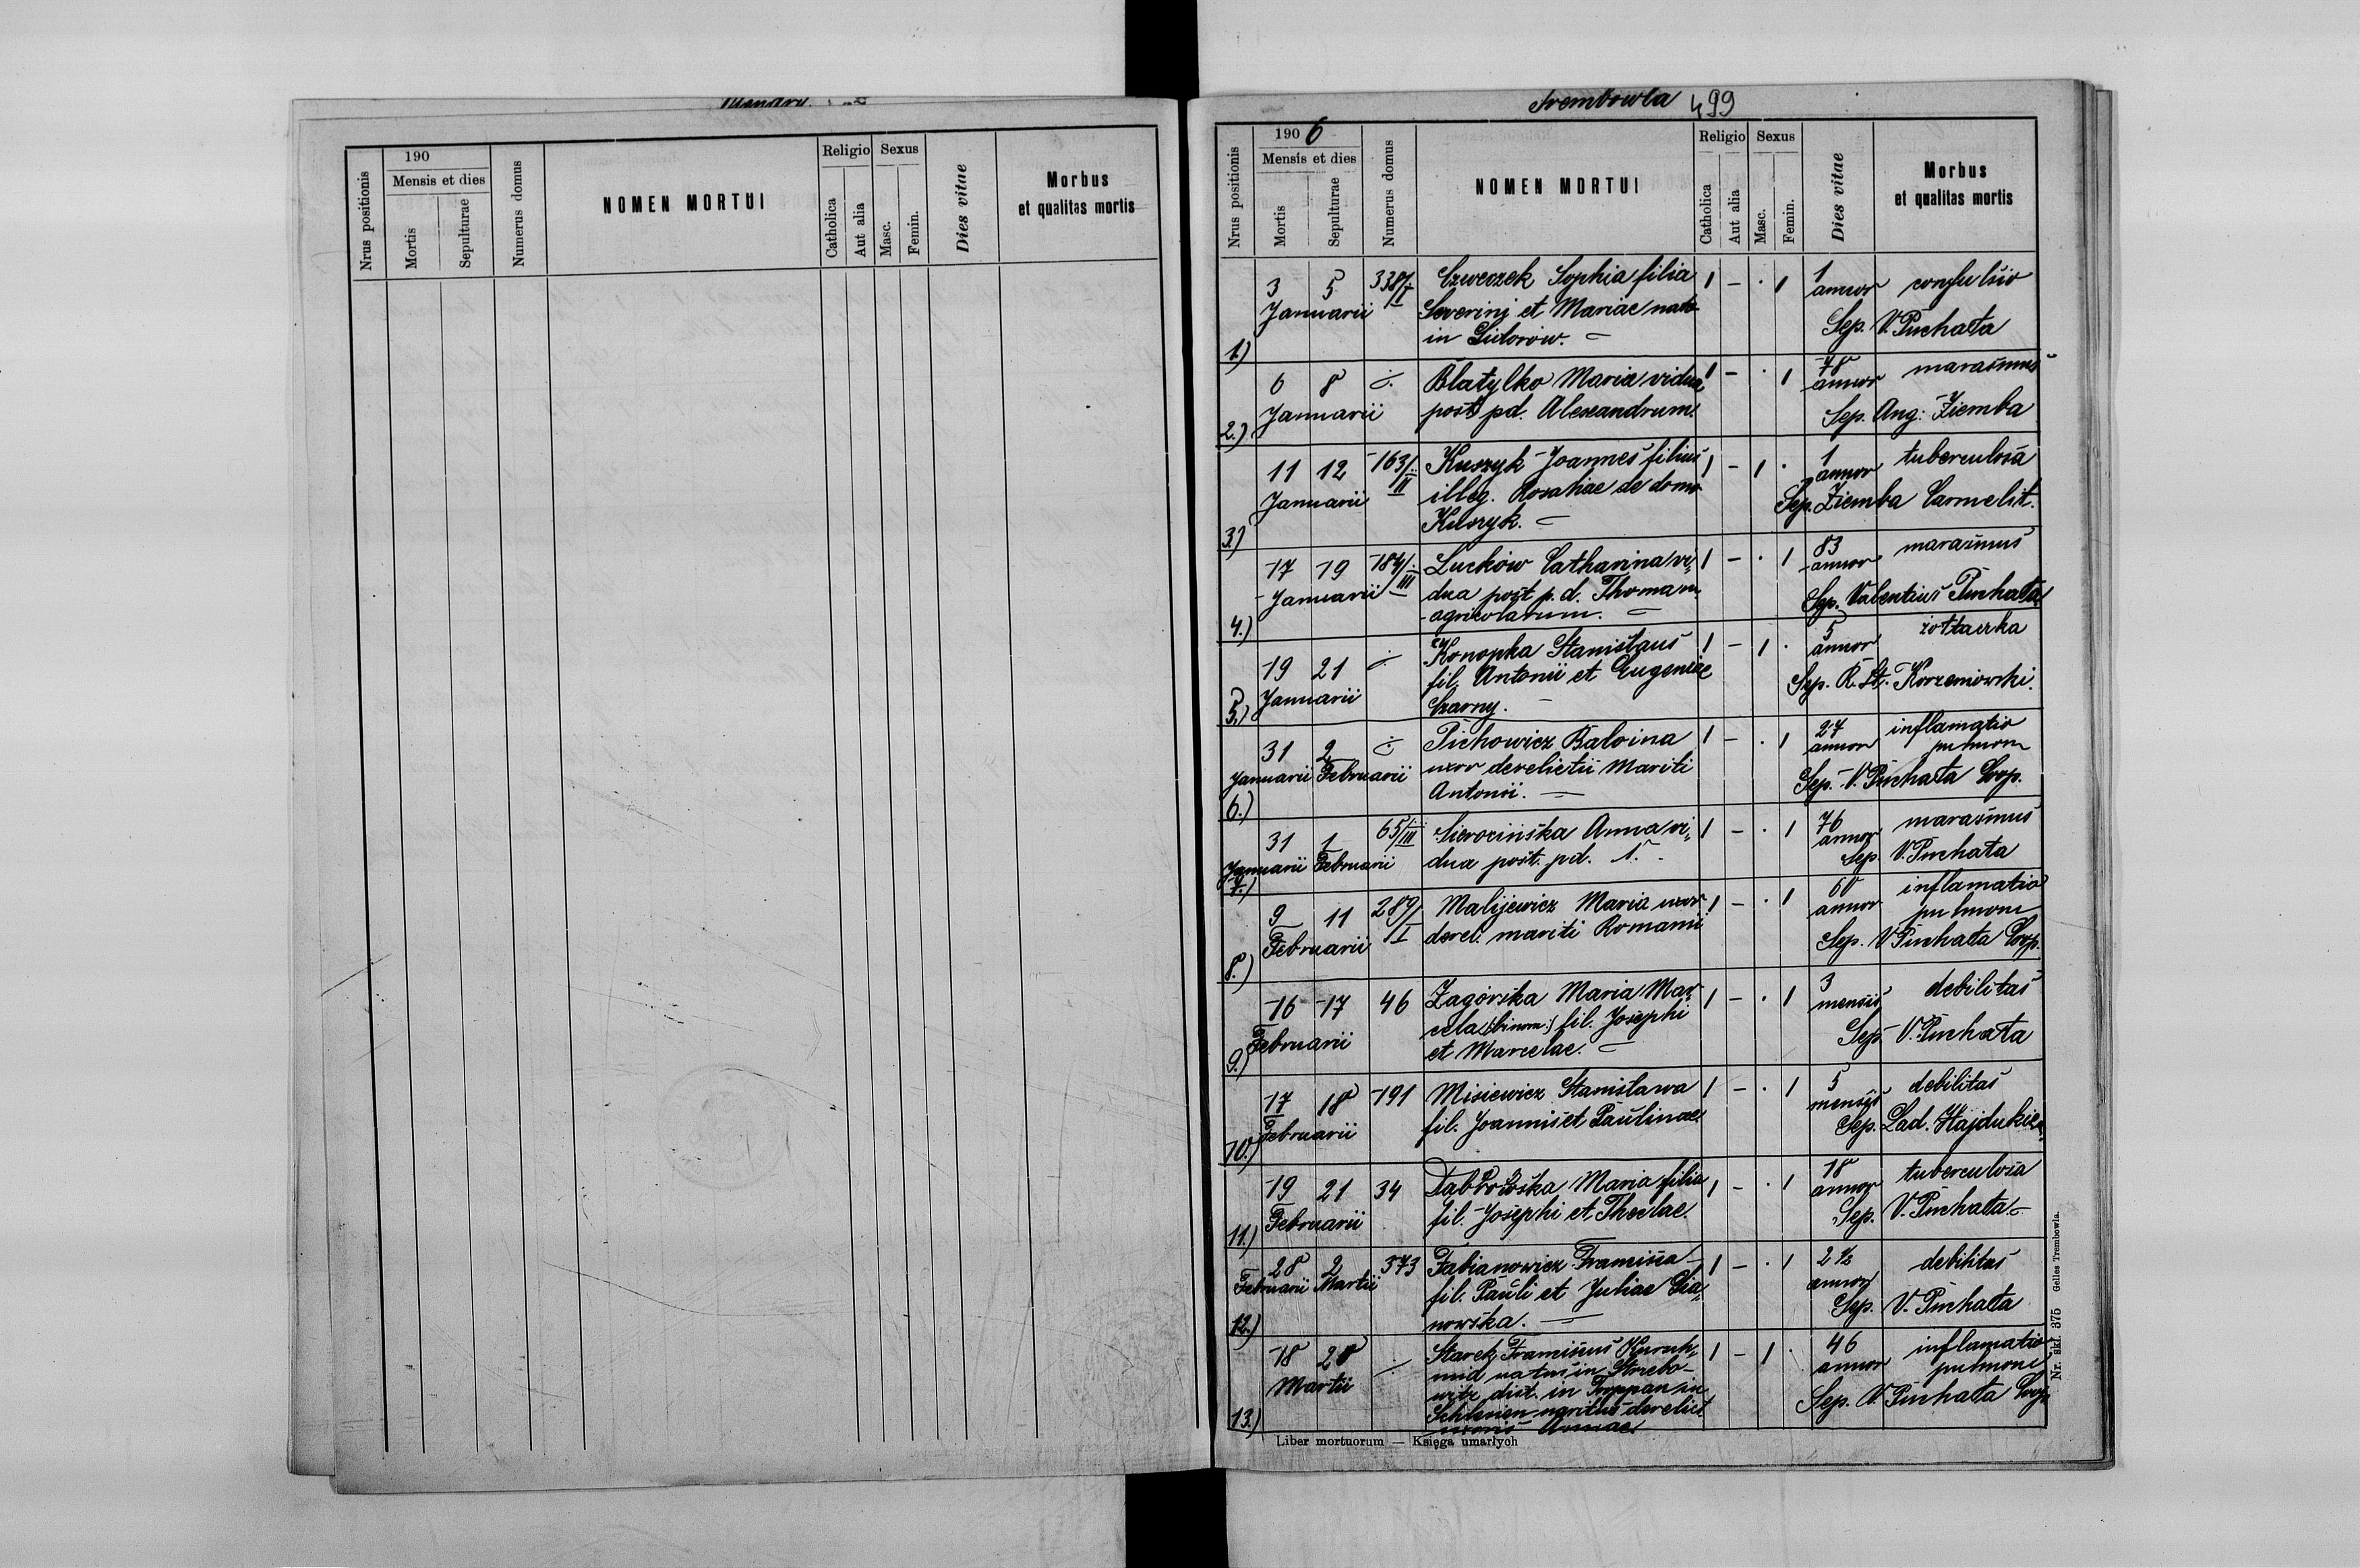 190
Mensis et dies
Nrus positionis
Mortis
Sepulturae
Numerus domus
NOMEN MORTUI
Religio
Catholica
Aut alia
Sexus
Masc.
Femin.
Dies vitae
Morbus
et qualitas mortis
Trembowla 499
1906
Mensis et dies
Nrus positionis
Mortis
Sepulturae
Numerus domus
NOMEN MORTUI
Religio
Catholica
Aut alia
Sexus
Masc.
Femin.
Dies vitae
Morbus
et qualitas mortis
3 5 338/I Szweczek Sophia filia 1 - . 1 1 convulsio
Januarii Severini et Mariae nata annor
1.) in Sidorow. Sep. V. Puchała
6 8 ÷ Blatylko Maria vidua 1 - . 1 78 marasmus
Januarii post pd. Alexandrum annor
2.) Sep. Aug: Ziemba
11 12 163/II Kuszyk Joannes filius 1 - 1 . 1 tuberculosa
Januarii illeg. Rosaliae de domo annor
3.) Kuszyk. Sep. Ziemba Carmelit.
17 19 184/III Luckow Catharina vi- 1 - . 1 83 marasmus
Januarii dua post p.d. Thomam annor
4.) agricolarum. Sep. Valentius Puchała
19 21 ÷ Konopka Stanislaus 1 - 1 . 5 żółtaczka
Januarii fil. Antonii et Eugeniae annor
5.) Czarny. Sep. R. St. Korzeniowski.
31 2 ÷ Pichowicz Balbina 1 - . 1 27 inflamatio
Januarii Februarii uxor derelictii mariti annor pulmon
6.) Antonii. Sep. V. Puchała Coop.
31 1 65/III Sierocińska Anna vi- 1 - . 1 76 marasmus
Januarii Februarii dua post. pd. N. annor
7.) Sep. V. Puchała
9 11 289/I Malijewicz Maria uxor 1 - . 1 60 inflamatio
Februarii derel. mariti Romanii annor pulmon
8.) Sep. V Puchała Coop.
16 17 46 Zagórska Maria Mar- 1 - . 1 3 debilitas
Februarii cela (: binom :) fil. Josephi mensis
9.) et Marcelae. Sep. V. Puchała
17 18 191 Misiewicz Stanisława 1 - . 1 5 debilitas
Februarii fil. Joannis et Paulinae mensis
10.) Sep. Lad. Hajdukie
19 21 34 Dabrowska Maria filia 1 - . 1 18 tuberculosa
Februarii fil. Josephi et Theclae annor
11.) Sep. V. Puchała
28 2 373 Fabianowicz Francisca 1 - . 1 2 1/2 debilitas
Februarii Martii fil. Pauli et Juliae annor
12.) nowska. Sep. V. Puchała
18 20 Franciscus 1 - 1 . 46 inflamatio
Martii natus in annor pulmon
dist. in Troppau in
13.) Schlesien maritus derelict Sep. V. Puchała Coop
uxoris Annae
Liber mortuorum — Księga umarłych
Nr. skł. 375 Gelles Trembowla.